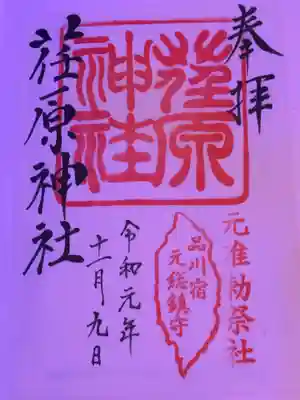 奉拝
元准勅祭社
荏原
神社
品川宿
元総鎮守
荏原神社
令和元年
十一月九日